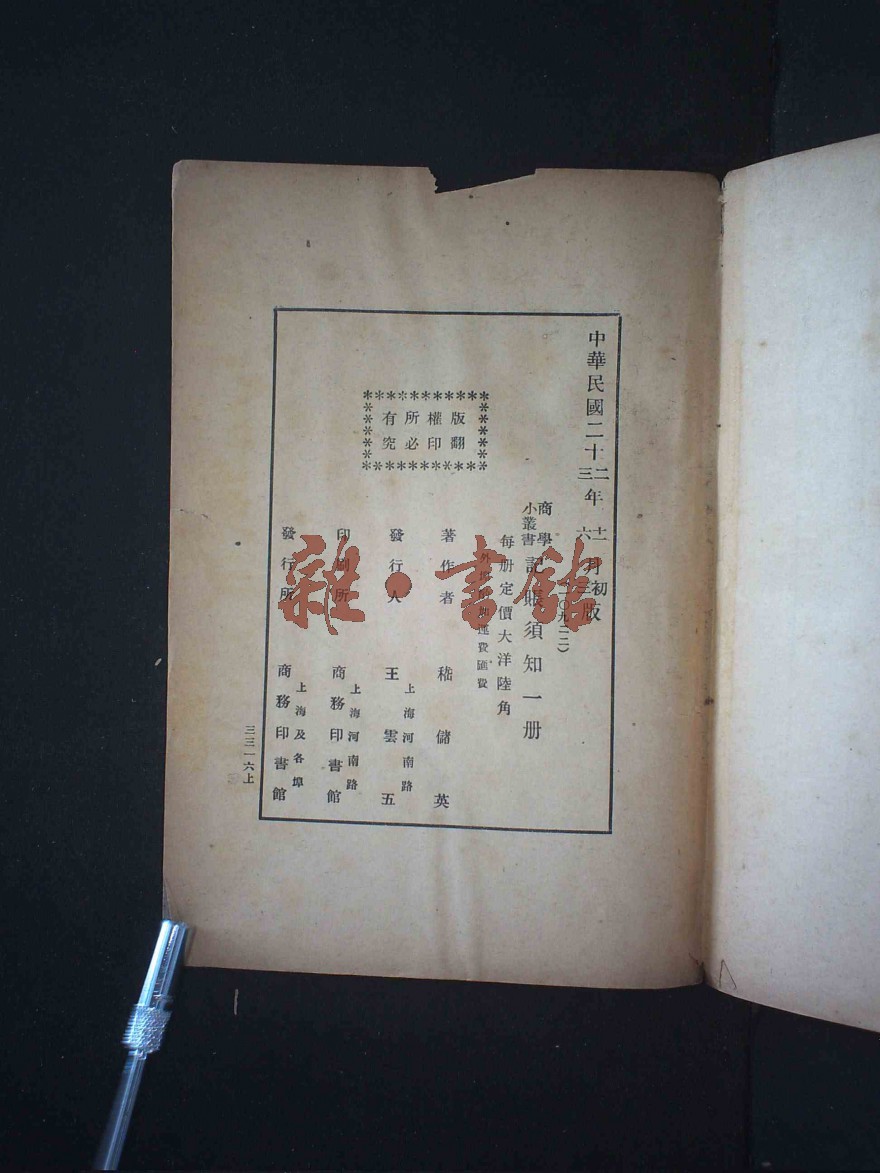 中華民國二十二年十一月初版
中華民國二十三年六月三版
商學小叢書
記賬須知一册
(一〇九二二)
每册定價大洋陸角
外埠酌加運費匯費
版權所有
翻印必究
著作者 嵇儲英
發行人 王雲五
上海河南路
印刷所 商務印書館
上海河南路
發行所 商務印書館
上海及各埠
三三一六上
雜·書館